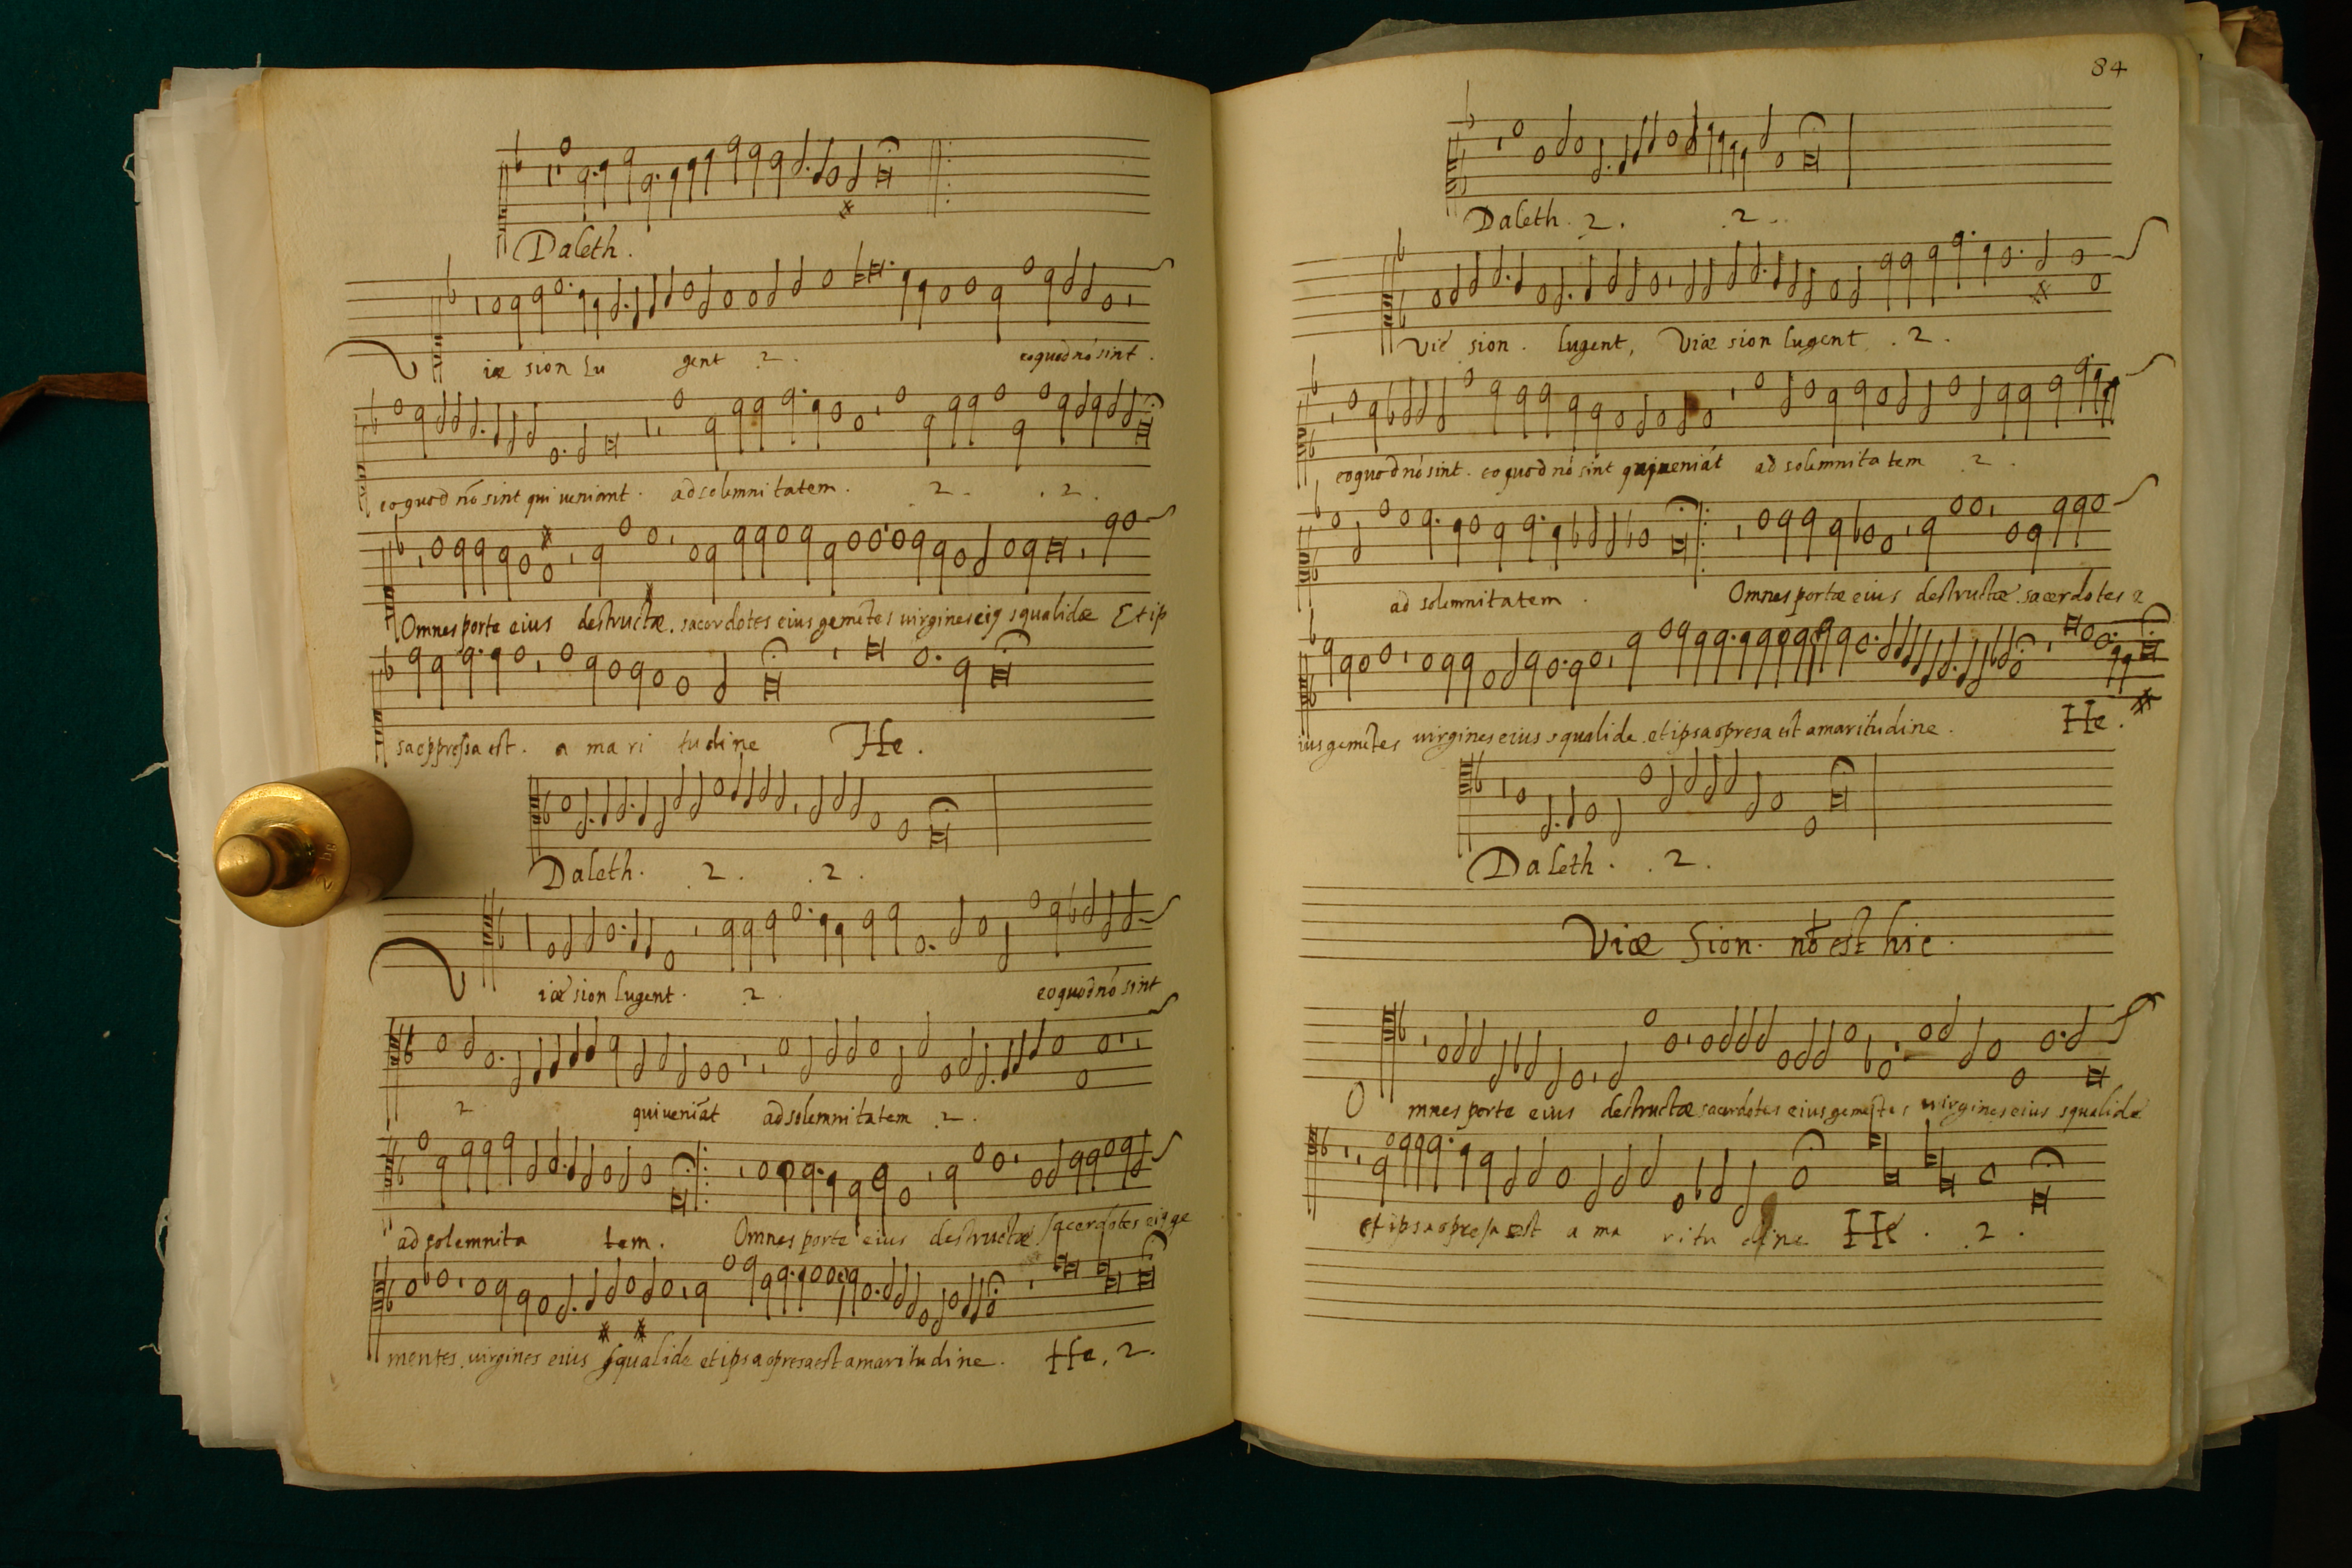 Daleth.
Viæ sion Lu gent .2. eo quod nó sint.
eo quod nō sint qui veniant. ad solemni tatem. 2. .2.
Omnes porte eius destructæ. sacerdotes eius gemētes virgines eiꝯ squalidæ Et ip
sa oppressa est. a ma ri tudine He.
Daleth. .2. .2.
Viæ sion Lugent. .2. eo quod nó sint
2 qui veniāt ad solemni tatem .2.
ad solemnita tem. Omnes porte eius destructæ. sacerdotes eiꝯ ge
mentes. virgines eius squalide et ipsa opresa est amaritudine. He. 2.
84
Daleth. 2. .2.
Vie sion. lugent, Viæ sion lugent .2.
eo quod nó sint. eo quod nó sint qui veniāt ad solemnita tem .2.
ad solemnitatem. Omnes portæ eius destructæ. sacerdotes e
ius gemētes virgines eius squalide. et ipsa opresa est amaritudine. He.
Daleth. .2.
Viæ Sion. nō est hic.
O mnes porte eius destructæ sacerdotes eius gemētes virgines eius squalide
et ipsa opresa est a ma ritu dine He. .2.